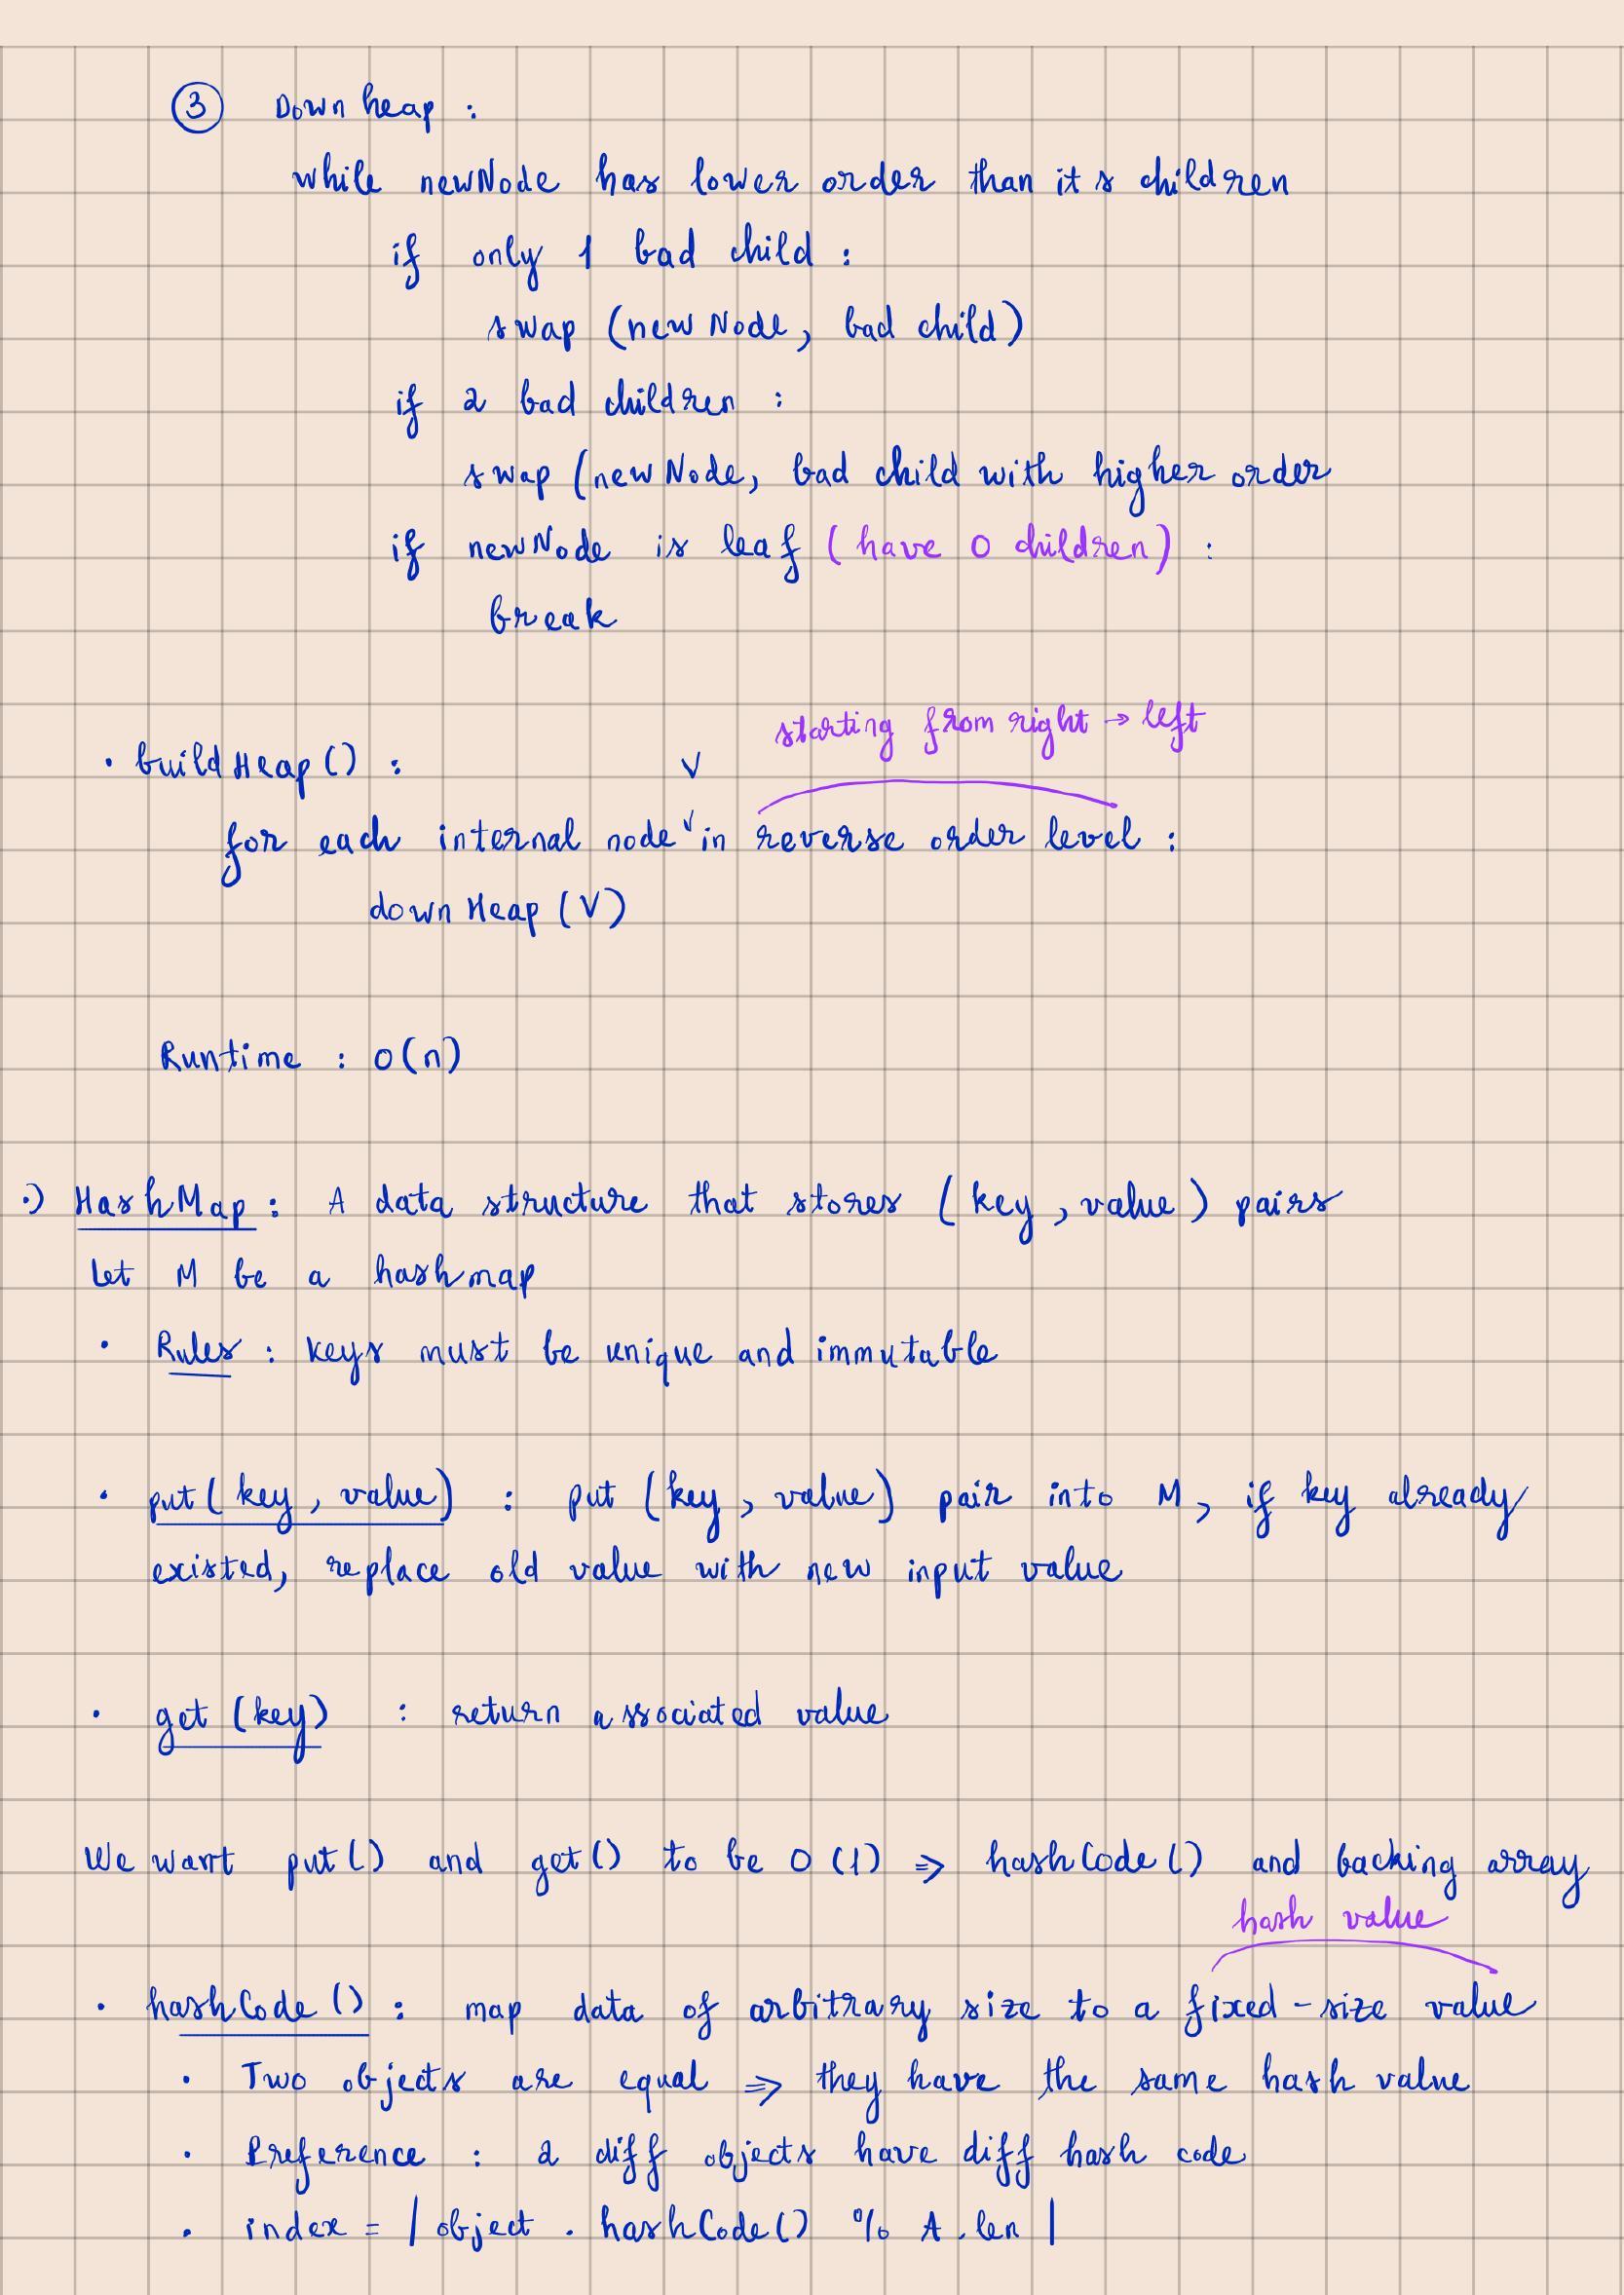 ③ Down heap :
while newNode has lower order than it s children
if only 1 bad child :
swap (new Node, bad child)
if 2 bad children :
swap (new Node, bad child with higher order
if newNode is leaf (have 0 children) :
break
starting from right → left
• build Heap () : V
for each internal node v in reverse order level :
down Heap (V)
Runtime : O(n)
•) HashMap : A data structure that stores (key, value) pairs
Let M be a hashmap
• Rules : keys must be unique and immutable
• put( key, value) : put (key, value) pair into M, if key already
existed, replace old value with new input value
• get (key) : return associated value
We want put() and get() to be O(1) => hashCode() and backing array
hash value
• hashCode () : map data of arbitrary size to a fixed-size value
• Two objects are equal => they have the same hash value
• Preference : 2 diff objects have diff hash code
• index = | object . hashCode() % A.len |